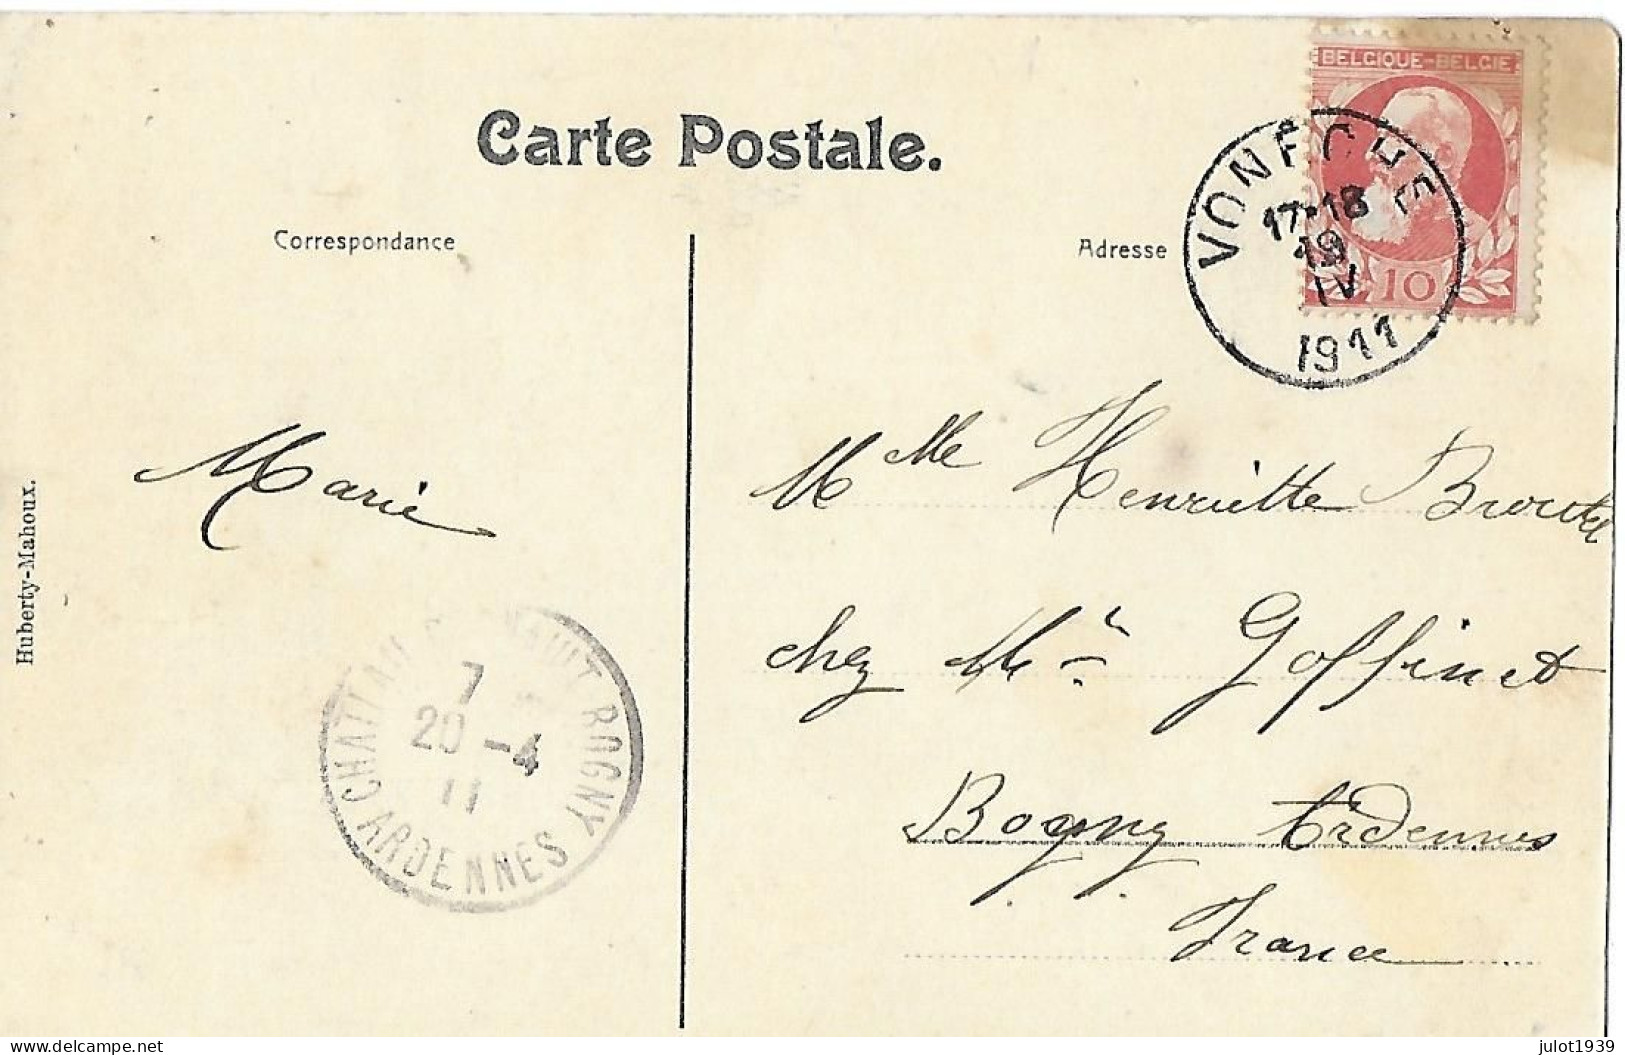 BELGIQUE-BELGIE
Carte Postale.
VONECHE
17-18
19
IV
1911
10
Correspondance
Adresse
Marie
Mlle Henriette
chez Mr Goffinet
Bogny Ardennes
France
Huberty-Mahoux.
REGNAULT BOGNY
7
20 -4
11
ARDENNES
Delcampe.net
julot1939